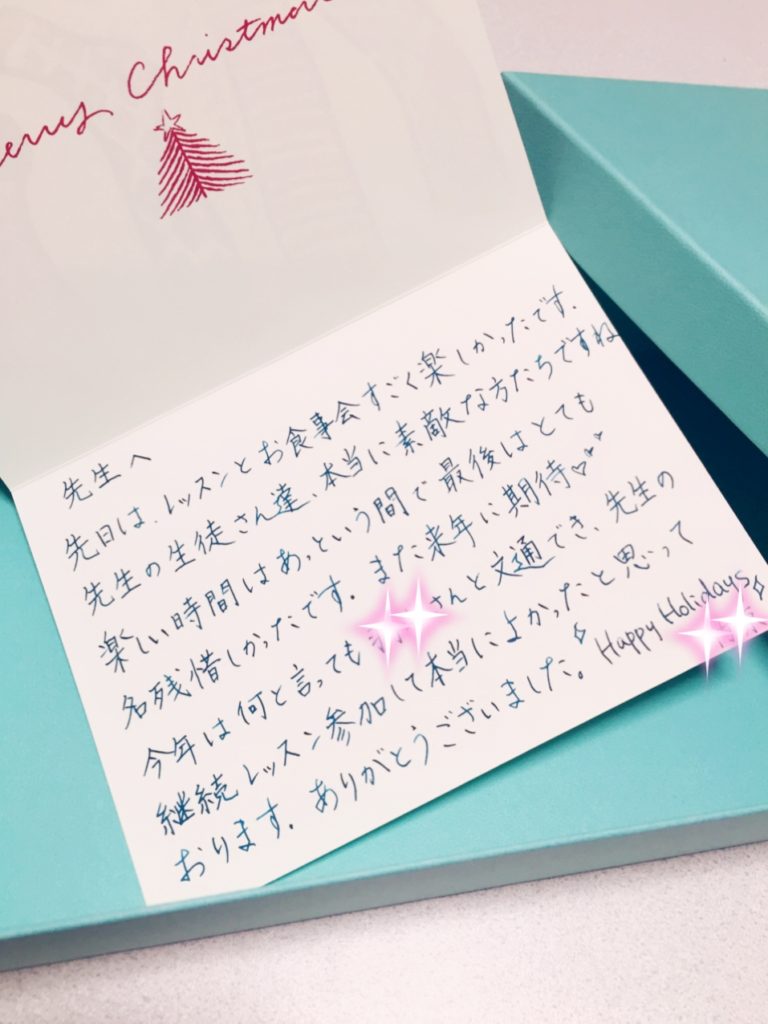 Merry Christmas
先生へ
先日は、レッスンとお食事会すごく楽しかったです.
先生の生徒さん達、本当に素敵な方たちですね
楽しい時間はあっという間で最後はとても
名残惜しかったです. また来年に期待♡
今年は何と言っても さんと文通でき、先生の
継続レッスン参加して本当によかったと思って
おります. ありがとうございました。
Happy Holidays